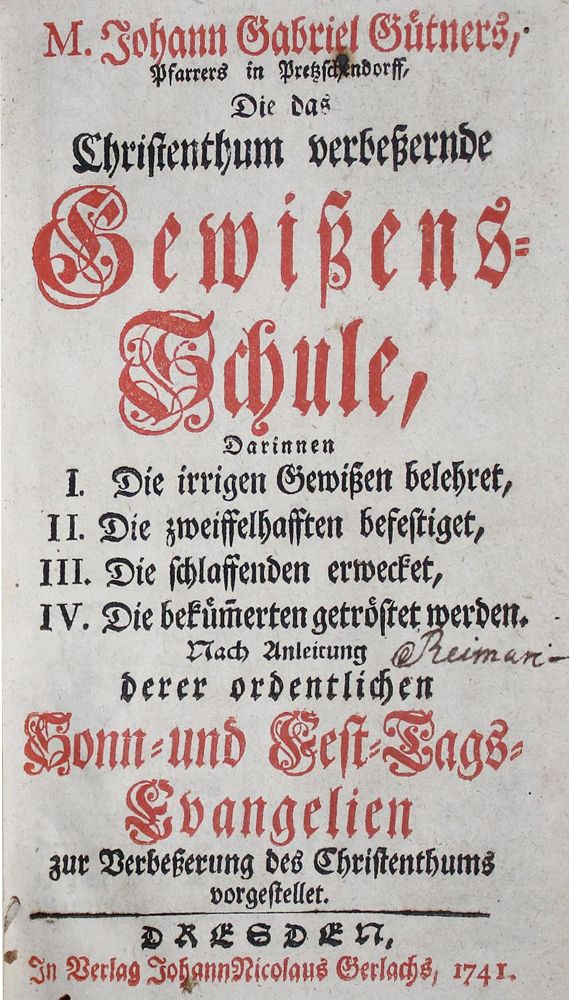 M. Johann Gabriel Gütners,
Pfarrers in Pretzschendorff,
Die das
Christenthum verbeßernde
Gewißens-
Schule,
Darinnen
I. Die irrigen Gewißen belehret,
II. Die zweiffelhafften befestiget,
III. Die schlaffenden erwecket,
IV. Die beküm̃erten getröstet werden.
Nach Anleitung
Reimari-
derer ordentlichen
Sonn-und Fest-Tags-
Evangelien
zur Verbeßerung des Christenthums
vorgestellet.
DRESDEN,
In Verlag Johann Nicolaus Gerlachs, 1741.